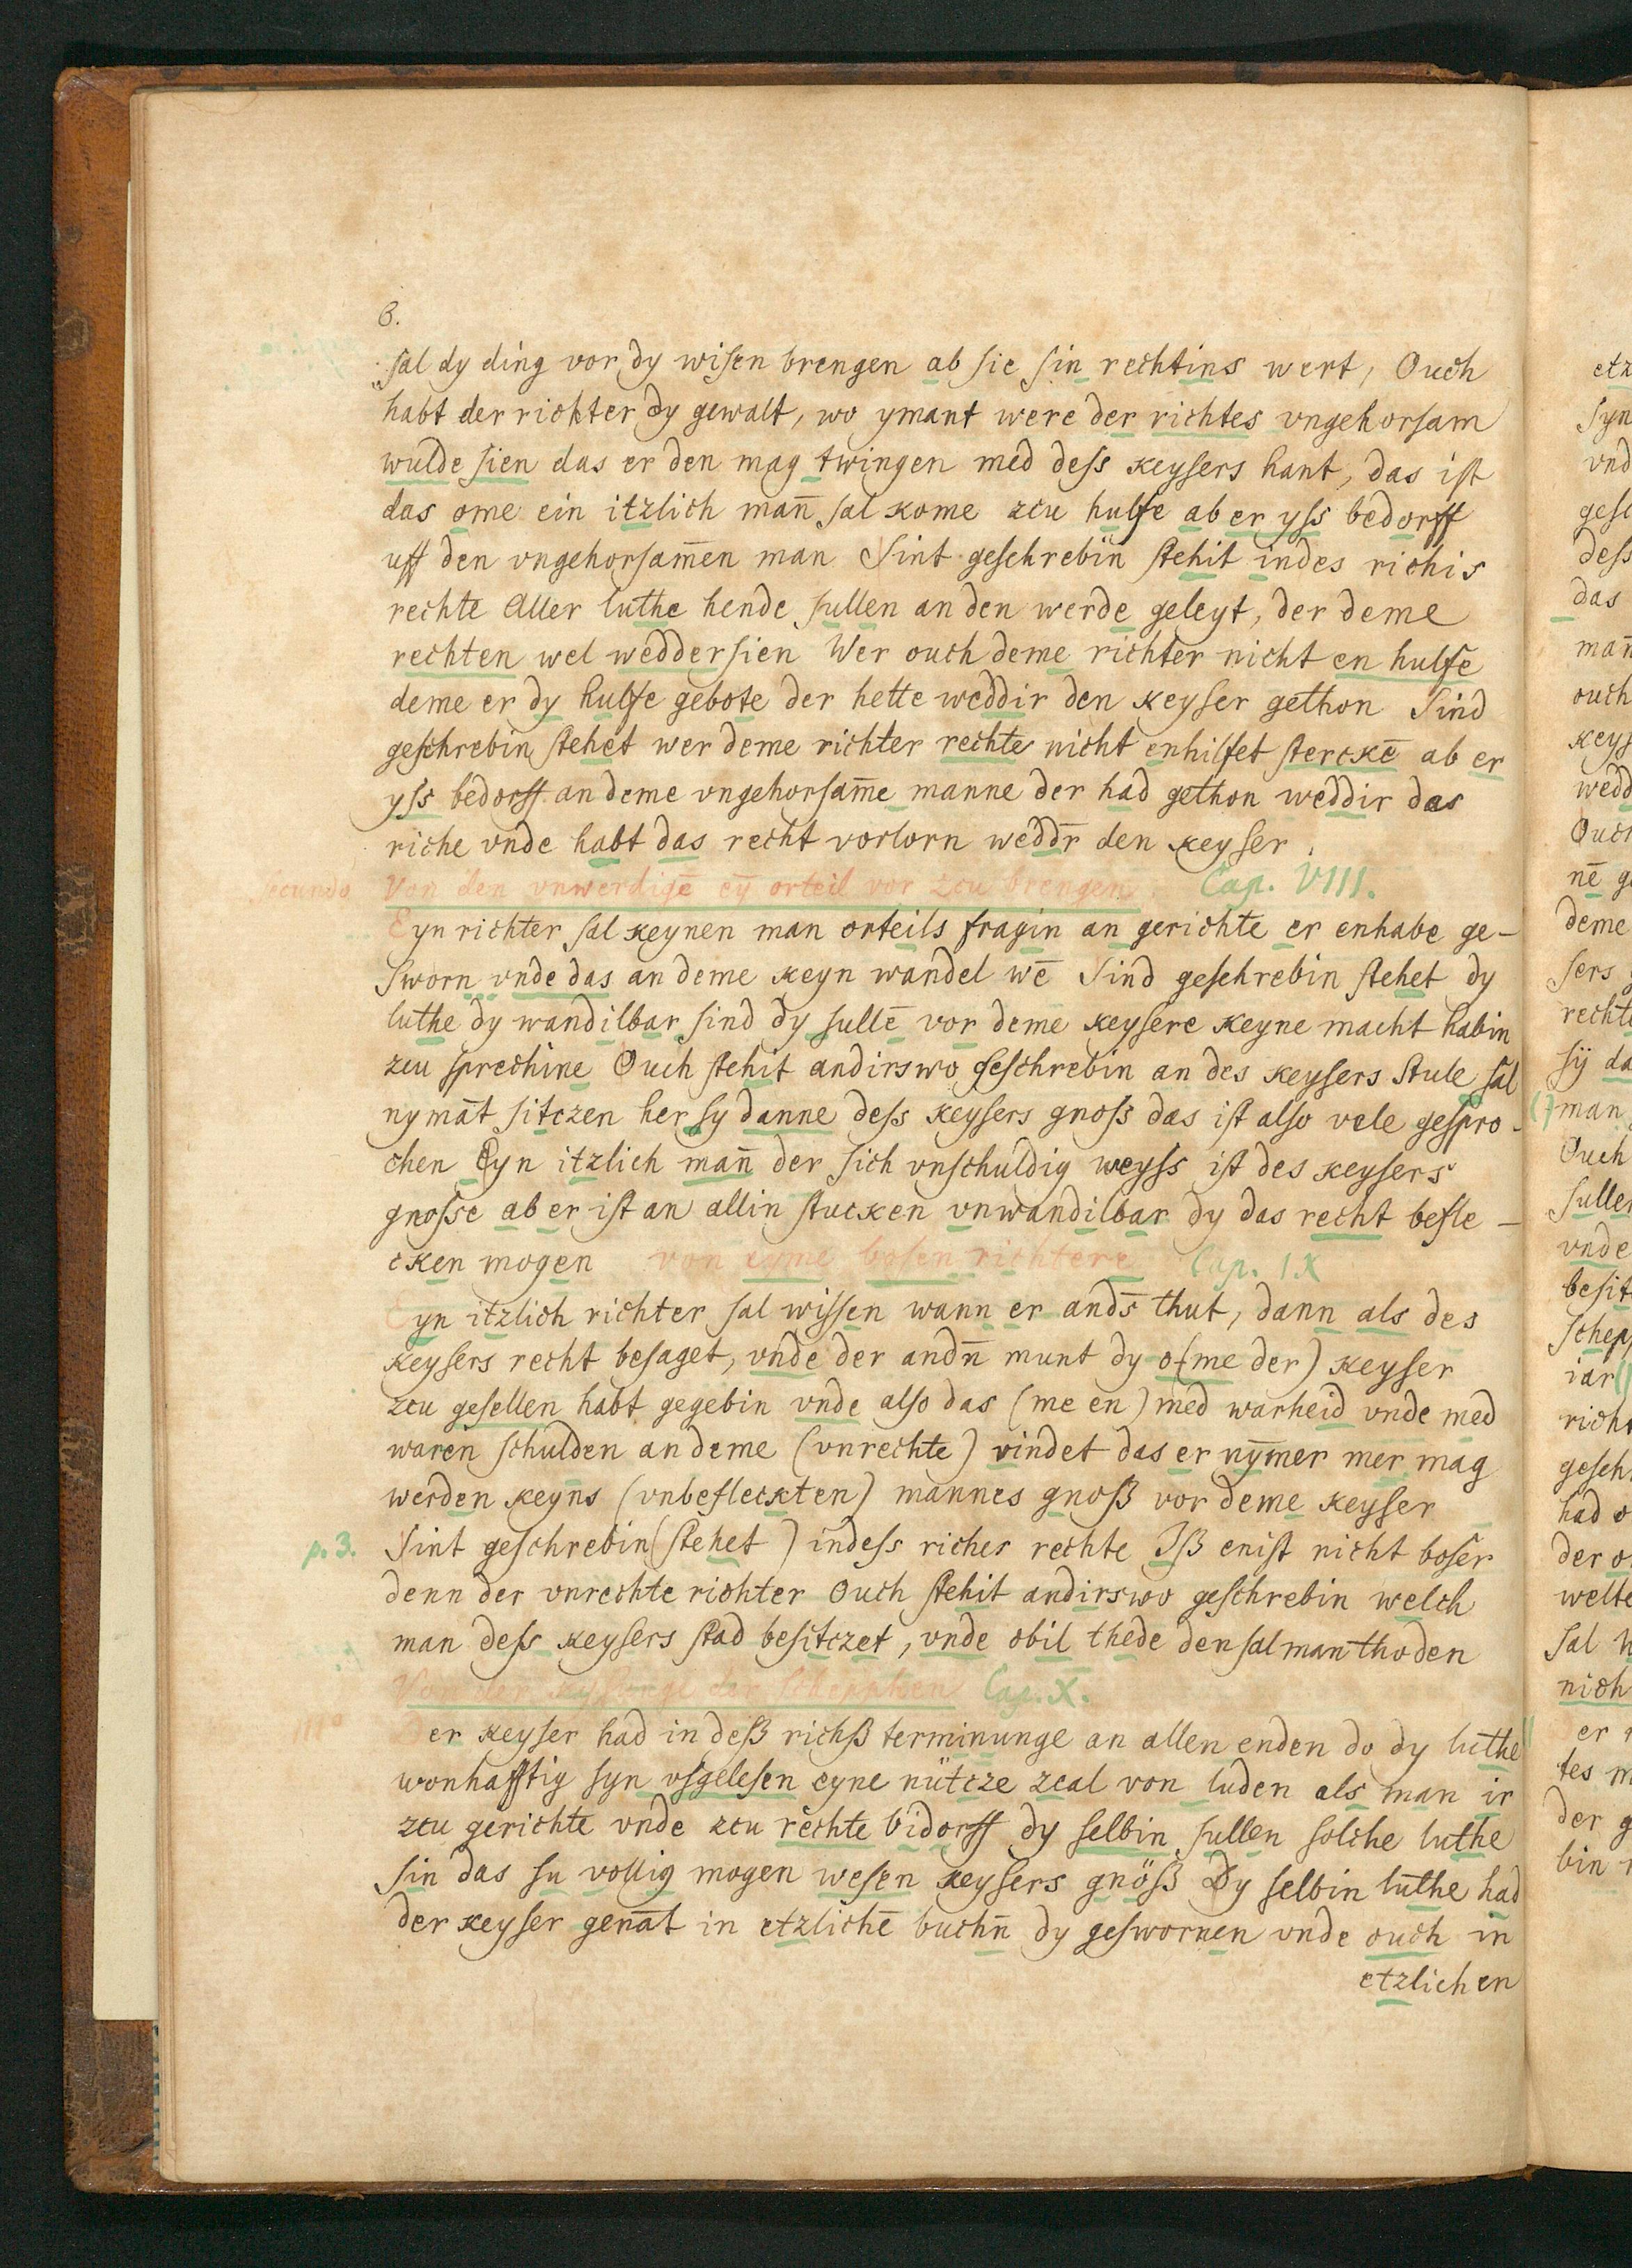 6.
sal dy ding vor dy wisen brengen ab sie sin rechtins wert, Ouch
habt der richter dy gewalt, wo ymant were der richtes vngehorsam
wulde sien das er den mag twingen med dess keysers hant, das ist
das ome ein itzlich man̄ sal kome zcu hulfe ab er yss bedorff
uff den vngehorsam̄en man Sint geschrebin stehit indes richis
rechte Aller luthe hende sullen an den werde geleyt, der deme
rechten wel weddersien Wer ouch deme richter nicht en hulfe
deme er dy hulfe gebote der hette weddir den keyser gethon Sind
geschrebin stehet wer deme richter rechte nicht enhilfet sterckē ab er
yss bedorff an deme vngehorsam̄e manne der had gethon weddir das
riche vnde habt das recht vorlorn wedd̄r den keyser.
secundo Von den vnwerdigē eȳ orteil vor zcu brengen Cap. VIII.
Eyn richter sal keynen man orteils fragin an gerichte er enhabe ge-
sworn vnde das an deme keyn wandel wē Sind geschrebin stehet dy
luthe dy wandilbar sind dy sullē vor deme keysere keyne macht habin
zcu sprechine Ouch stehit andirswo geschrebin an des keysers Stule sal
nymāt sitczen her sy danne dess keysers gnoss das ist also vele gespro-
chen Eyn itzlich man̄ der sich vnschuldig weyss ist des keysers
gnosse ab er ist an allin stucken vnwandilbar dy das recht befle-
cken mogen von eyme bosen richtere Cap. IX
Eyn itzlich richter sal wissen wann er and̄s thut, dann als des
keysers recht besaget, vnde der andn̄ munt dy o(me der) keyser
zcu gesellen habt gegebin vnde also das (me en) med warheid vnde med
waren schulden an deme (vnrechte) vindet das er nym̄er mer mag
werden keyns (vnbefleckten) mannes gnoß vor deme keyser
p. 3. Sint geschrebin (stehet) indess riches rechte Jß enist nicht boser
denn der vnrechte richter Ouch stehit andirswo geschrebin welch
man dess keysers stad besitczet, vnde obil thede den sal man thoden
Von der kysunge der Schepphen Cap. X.
er keyser had in deß richß terminunge an allen enden do dy luthe
wonhafftig syn vsgelesen eyne nütcze zcal von luden als man ir
zcu gerichte vnde zcu rechte bidorff dy selbin sullen solche luthe
sin das su vollig mogen wesen keysers gnöß Dy selbin luthe had
der keyser genāt in etzlichē buchn̄ dy geswornen vnde ouch in
etzlichen